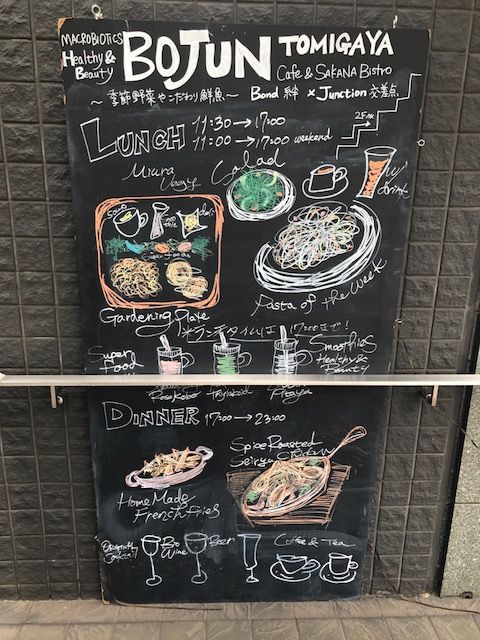 MACROBIOTICS
Healthy &
Beauty
BOJUN TOMIGAYA
Cafe & SAKANA BISTRO
〜季節野菜やこだわり鮮魚〜 Bond 絆 × Junction 交差点
LUNCH 11:30→17:00
11:00→17:00 weekend
2F
Miura
Salad
w/ drink
Gardening Plate
Pasta of the Week
※ランチタイムは17:00まで!
Super
Food
Smoothies
Healthy &
Beauty
DINNER 17:00→23:00
Spice Roasted
Home Made
French Fries
Organic
Cocktail
Bio
Wine
Beer
Coffee & Tea